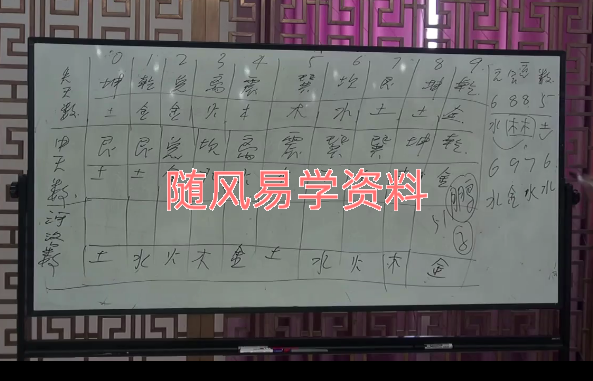 0 1 2 3 4 5 6 7 8 9
先天数 坤 乾 兑 离 震 巽 坎 艮 坤 乾
土 金 金 火 木 木 水 土 土 金
中天数 艮 艮 兑 坎 离 震 巽 巽 坤 乾
土 土 金
随风易学资料
河洛数
土 水 火 木 金 土 水 火 木 金
数
6 8 8 5
水 木 木 土
6 9 7 6
水 金 水 水
鹏